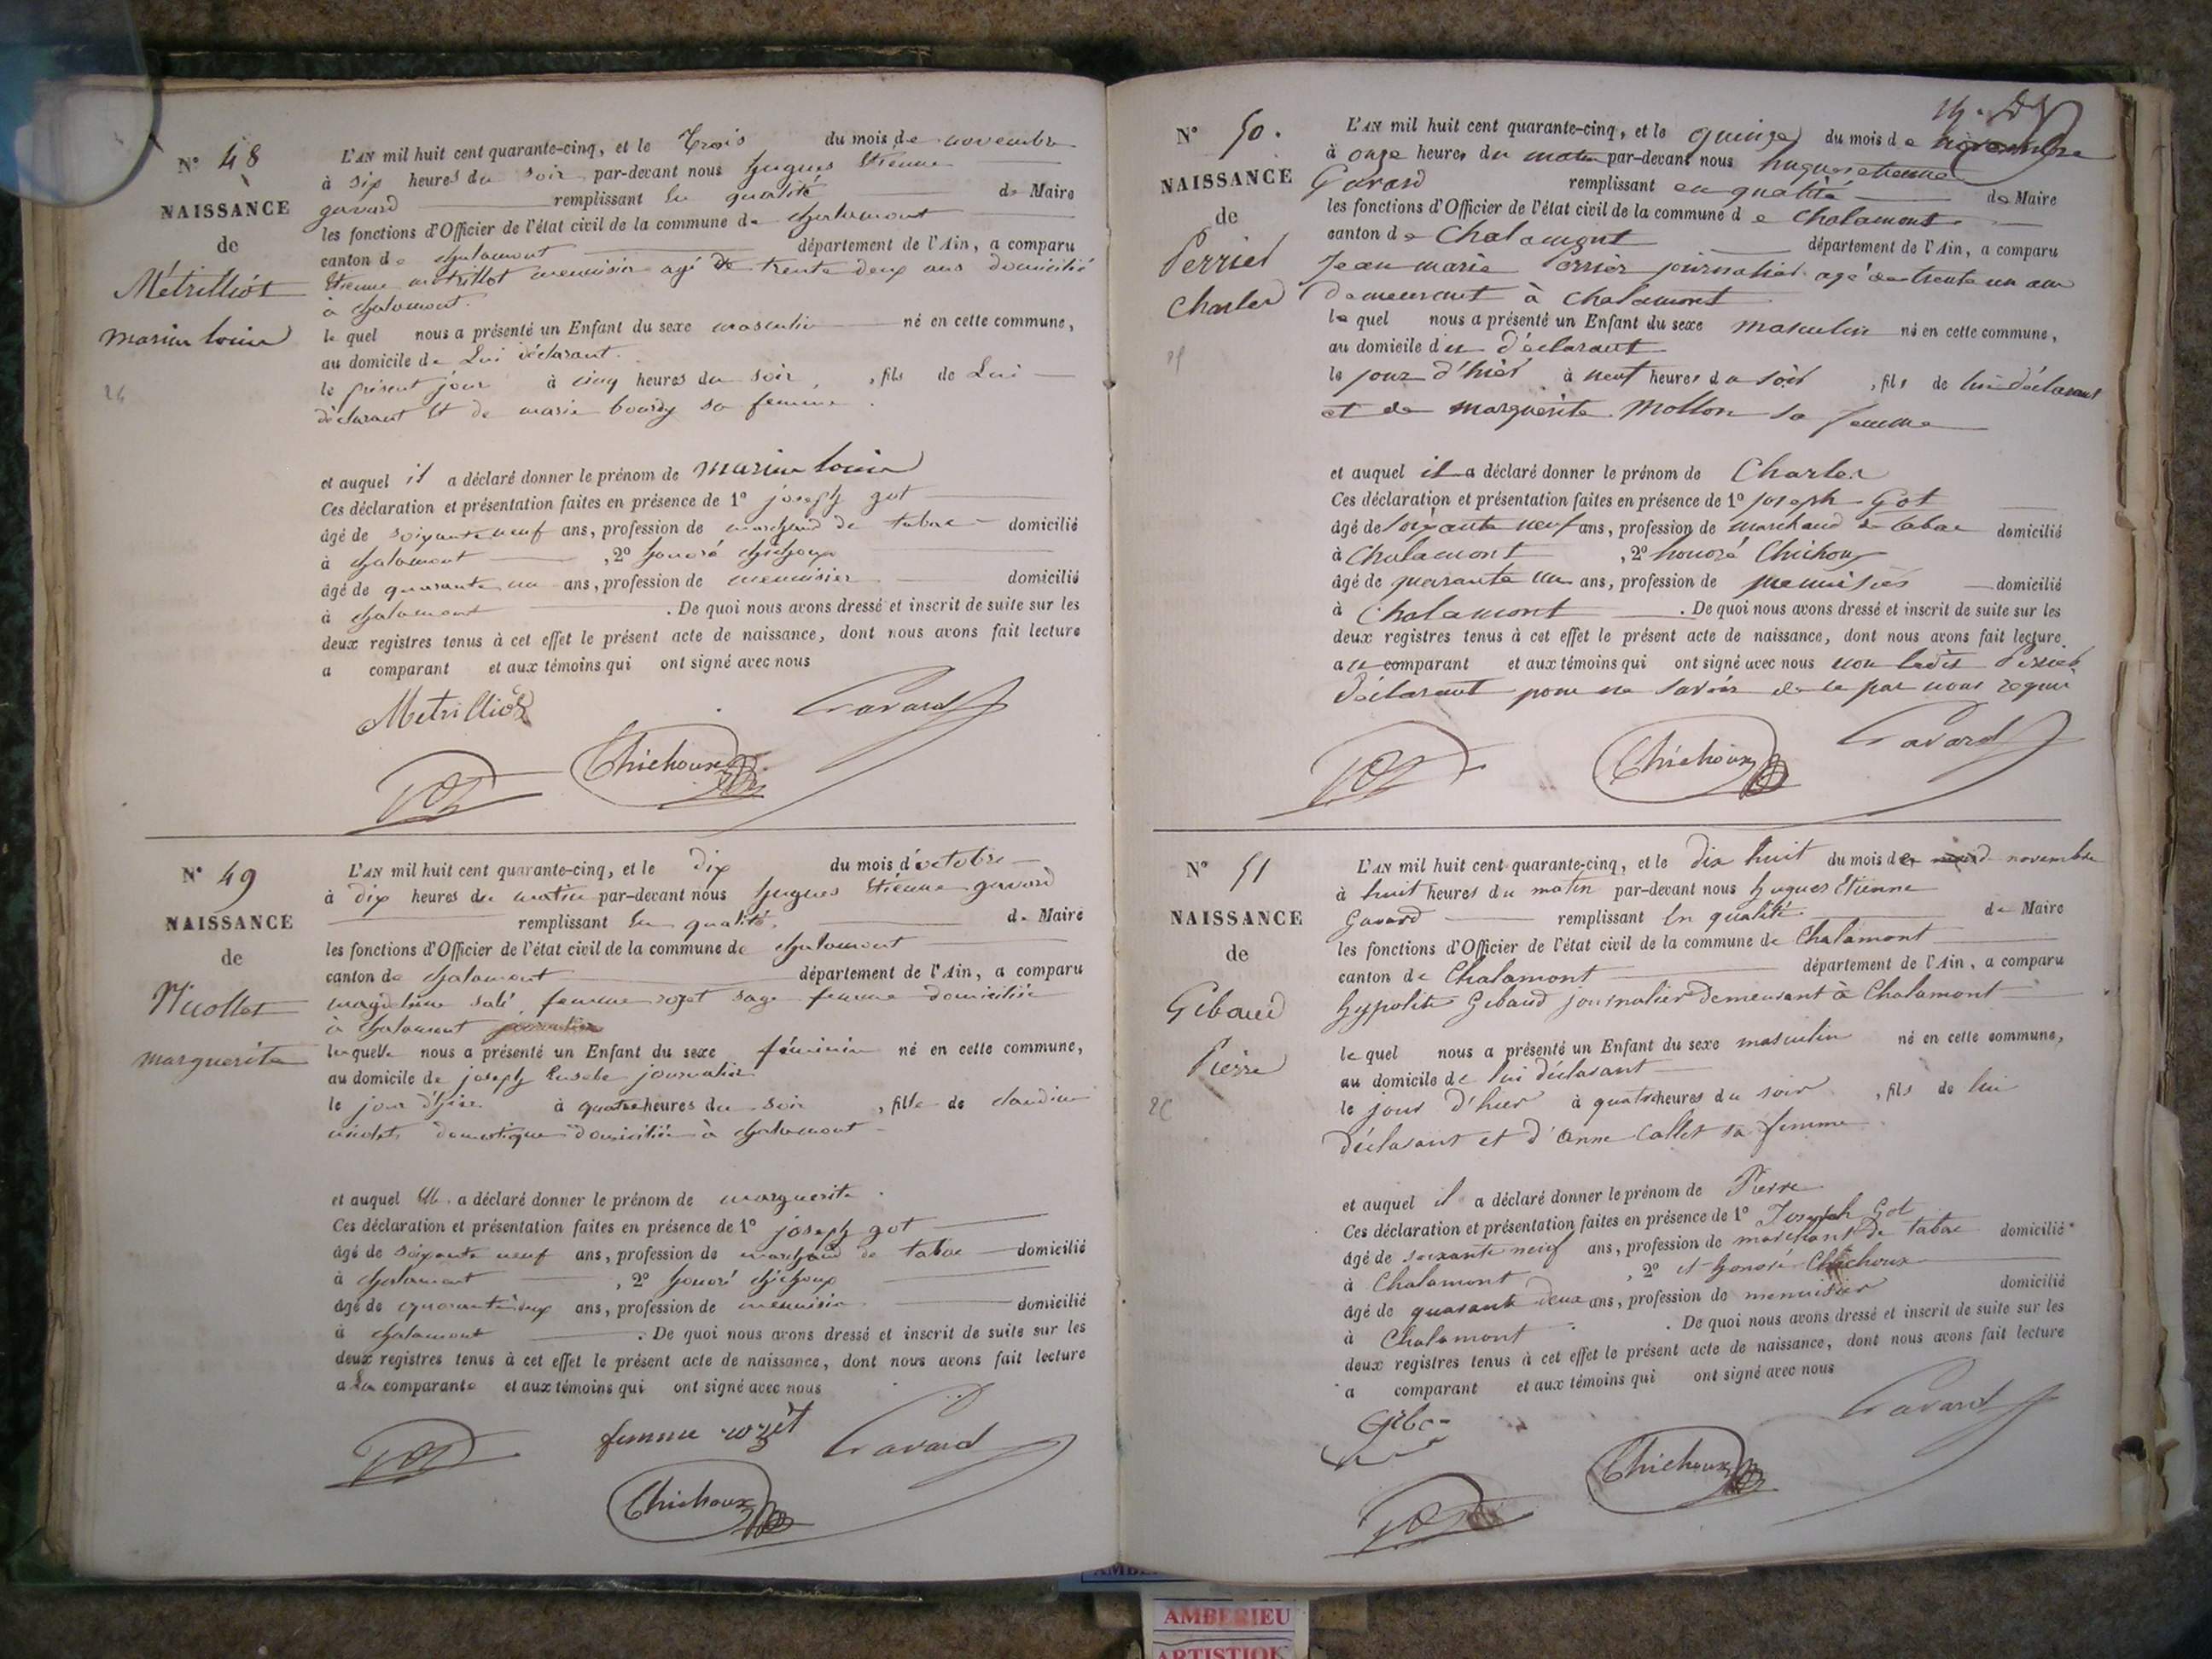 N° 48
NAISSANCE
de
Métrilliot
marin louis
L'AN mil huit cent quarante-cinq, et le Trois du mois de novembre
à six heures du soir par-devant nous hugues Etienne
gavard remplissant En qualité de Maire
les fonctions d'Officier de l'état civil de la commune de chalamont
canton de chalamont département de l'Ain, a comparu
Etienne métrillot menuisier agé de trente deux ans domicilié
à chalamont
le quel nous a présenté un Enfant du sexe masculin né en cette commune,
au domicile de Lui déclarant
le présent jour à cinq heures du soir, fils de Lui
déclarant et de marie bourdy sa femme
et auquel il a déclaré donner le prénom de marin louis
Ces déclaration et présentation faites en présence de 1° joseph got
âgé de soixante neuf ans, profession de marchand de tabac domicilié
à chalamont, 2° honoré chichoux
âgé de quarante un ans, profession de menuisier domicilié
à chalamont. De quoi nous avons dressé et inscrit de suite sur les
deux registres tenus à cet effet le présent acte de naissance, dont nous avons fait lecture
a comparant et aux témoins qui ont signé avec nous
Metrilliot Gavard
Got Chichoux
N° 49
NAISSANCE
de
Nicollet
marguerite
L'AN mil huit cent quarante-cinq, et le dix du mois d'octobre
à dix heures du matin par-devant nous hugues Etienne gavard
remplissant En qualité de Maire
les fonctions d'Officier de l'état civil de la commune de chalamont
canton de chalamont département de l'Ain, a comparu
magdeleine femme rozet sage femme domiciliée
à chalamont
laquelle nous a présenté un Enfant du sexe féminin né en cette commune,
au domicile de joseph journalier
le jour d'hier à quatre heures du soir, fille de claudine
nicolet domestique domiciliée à chalamont
et auquel elle a déclaré donner le prénom de marguerite
Ces déclaration et présentation faites en présence de 1° joseph got
âgé de soixante neuf ans, profession de marchand de tabac domicilié
à chalamont, 2° honoré chichoux
âgé de quarante deux ans, profession de menuisier domicilié
à chalamont. De quoi nous avons dressé et inscrit de suite sur les
deux registres tenus à cet effet le présent acte de naissance, dont nous avons fait lecture
a la comparante et aux témoins qui ont signé avec nous
Got femme rozet Gavard
Chichoux
N° 50.
NAISSANCE
de
Perrier
Charles
L'AN mil huit cent quarante-cinq, et le quinze du mois de novembre
à onze heures du matin par-devant nous hugues etienne
Gavard remplissant en qualité de Maire
les fonctions d'Officier de l'état civil de la commune de Chalamont
canton de Chalamont département de l'Ain, a comparu
Jean marie Perrier journalier agé de trente un ans
demeurant à chalamont
le quel nous a présenté un Enfant du sexe masculin né en cette commune,
au domicile du déclarant
le jour d'hier à neuf heures du soir, fils de lui déclarant
et de marguerite Mollon sa femme
et auquel il a déclaré donner le prénom de Charles
Ces déclaration et présentation faites en présence de 1° joseph Got
âgé de soixante neuf ans, profession de marchand de tabac domicilié
à Chalamont, 2° honoré Chichoux
âgé de quarante un ans, profession de menuisier domicilié
à Chalamont. De quoi nous avons dressé et inscrit de suite sur les
deux registres tenus à cet effet le présent acte de naissance, dont nous avons fait lecture
au comparant et aux témoins qui ont signé avec nous non ledit Perrier
déclarant pour ne savoir de ce par nous requis
Got Chichoux Gavard
N° 51
NAISSANCE
de
Gibaud
Pierre
L'AN mil huit cent quarante-cinq, et le dix huit du mois de novembre
à huit heures du matin par-devant nous hugues Etienne
Gavard remplissant En qualité de Maire
les fonctions d'Officier de l'état civil de la commune de Chalamont
canton de Chalamont département de l'Ain, a comparu
hyppolite Gibaud journalier demeurant à Chalamont
le quel nous a présenté un Enfant du sexe masculin né en cette commune,
au domicile de lui déclarant
le jour d'hier à quatre heures du soir, fils de lui
déclarant et d'anne Collet sa femme
et auquel il a déclaré donner le prénom de Pierre
Ces déclaration et présentation faites en présence de 1° Joseph Got
âgé de soixante neuf ans, profession de marchant de tabac domicilié
à Chalamont, 2° et honoré Chichoux
âgé de quarante deux ans, profession de menuisier domicilié
à Chalamont. De quoi nous avons dressé et inscrit de suite sur les
deux registres tenus à cet effet le présent acte de naissance, dont nous avons fait lecture
a comparant et aux témoins qui ont signé avec nous
Gavard
Chichoux
Got
AMBERIEU